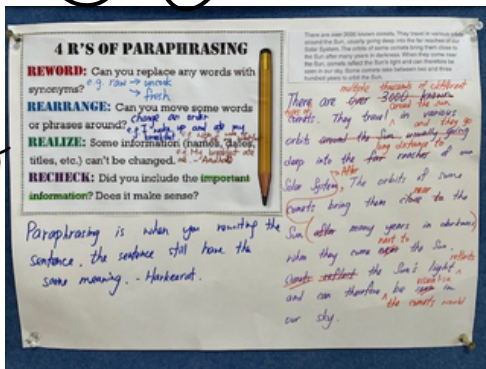 4 R'S OF PARAPHRASING
REWORD: Can you replace any words with
synonyms? e.g. raw → uncook
→ fresh
REARRANGE: Can you move some words
or phrases around? change an order
REALIZE: Some information (names, dates,
titles, etc.) can't be changed.
RECHECK: Did you include the important
information? Does it make sense?
Paraphrasing is when you rewriting the
sentence, the sentence still have the
same meaning. - Harkearat.
There are over 3000 known comets. They travel in various orbits
around the Sun, usually going deep into the far reaches of our
Solar System. The orbits of some comets bring them close to
the Sun after many years in darkness. When they come near
the Sun, comets reflect the Sun's light and can therefore be
seen in our sky. Some comets take between two and three
hundred years to orbit the Sun.
multiple thousands of different
There are over 3000 known
types of around the sun
comets. They travel in various
and they go
orbits around the Sun usually going
long distance to
deep into the far reaches of our
After
Solar System, The orbits of some
near
comets bring them close to the
Sun (after many years in darkness)
next to
when they come the Sun.
reflects
comets reflect the Sun's light
visualise
and can therefore be seen in
the comets would
our sky.